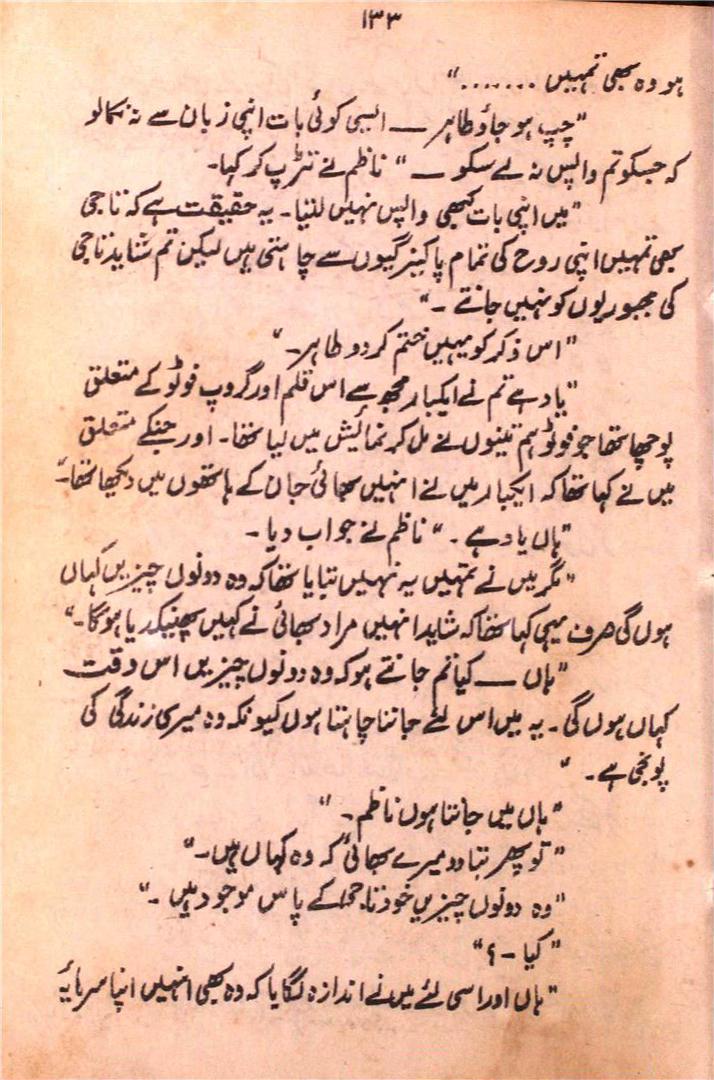 ۱۳۳
ہو وہ بھی تمہیں ......."
"چپ ہو جاؤ طاہر ــــ ایسی کوئی بات اپنی زبان سے نہ نکالو
کہ جسکو تم واپس نہ لے سکو ــــ" ناظم نے تڑپ کر کہا۔
"میں اپنی بات کبھی واپس نہیں لیتا۔ یہ حقیقت ہے کہ ناجی
بھی تمہیں اپنی روح کی تمام پاکیزگیوں سے چاہتی ہیں لیکن تم شاید ناجی
کی مجبوریوں کو نہیں جانتے ۔"
"اس ذکر کو یہیں ختم کر دو طاہر۔"
"یاد ہے تم نے ایکبار مجھ سے اس قلم اور گروپ فوٹو کے متعلق
پوچھا تھا جو فوٹو ہم تینوں نے مل کر نمائیش میں لیا تھا۔ اور جنکے متعلق
میں نے کہا تھا کہ ایکبار میں نے انہیں بھائی جان کے ہاتھوں میں دیکھا تھا۔"
"ہاں یاد ہے ۔" ناظم نے جواب دیا۔
"مگر میں نے تمہیں یہ نہیں بتایا تھا کہ وہ دونوں چیزیں کہاں
ہوں گی صرف یہی کہا تھا کہ شاید انہیں مراد بھائی نے کہیں پھینکدیا ہوگا۔"
"ہاں ــــ کیا تم جانتے ہو کہ وہ دونوں چیزیں اس وقت
کہاں ہوں گی۔ یہ میں اس لئے جاننا چاہتا ہوں کیونکہ وہ میری زندگی کی
پونجی ہے۔"
"ہاں میں جانتا ہوں ناظم۔"
"تو پھر بتا دو میرے بھائی کہ وہ کہاں ہیں۔"
"وہ دونوں چیزیں خود ناجی کے پاس موجود ہیں ۔"
"کیا ۔؟"
"ہاں اور اسی لئے میں نے اندازہ لگایا کہ وہ بھی انہیں اپنا سرمایہ